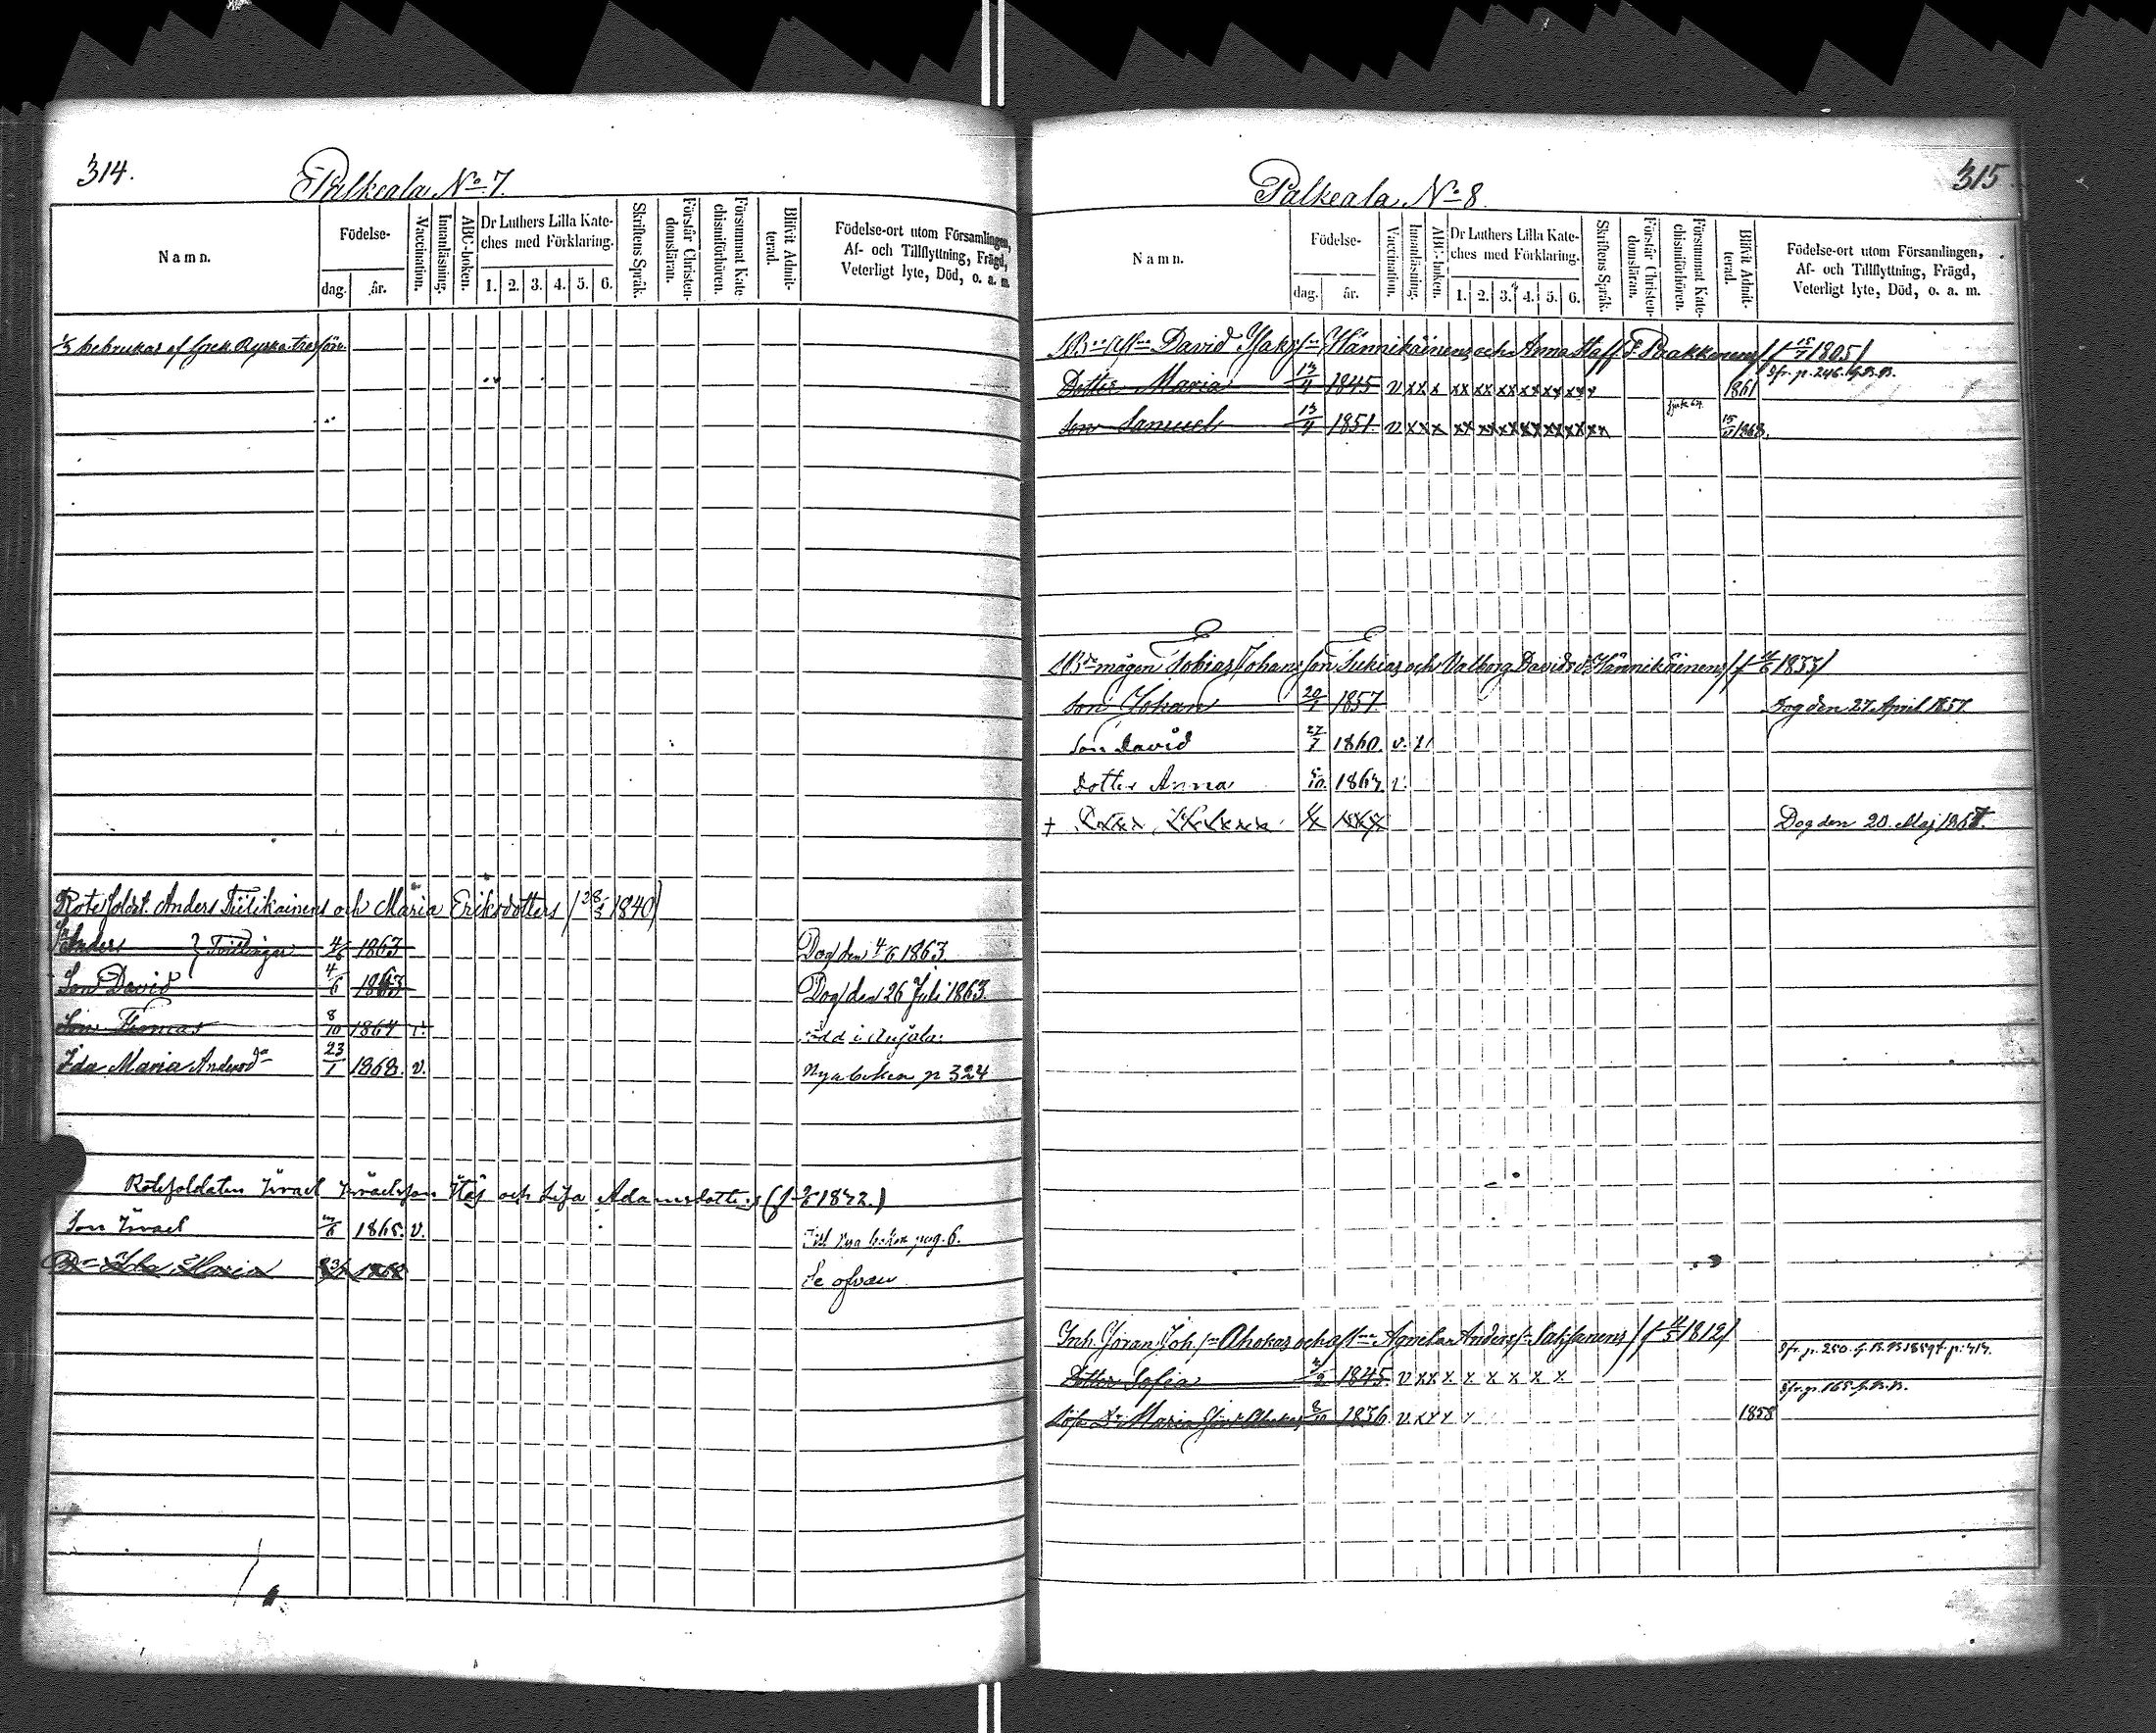 314.
Palkeala No 7.
Namn.
Födelse-
dag.
år.
Vaccination.
Innanläsning.
ABC-boken.
Dr Luthers Lilla Kate-
ches med Förklaring.
1. 2. 3. 4. 5. 6.
Skriftens Språk.
Förstår Christen-
domsläran.
Försummat Kate
chismiförhören.
Blifvit Admit-
terad.
Födelse-ort utom Församlingen,
Af- och Tillflyttning, Frägd,
Veterligt lyte, Död, o. a. m.
1/3 bebrukas af Grek. Ryska
Rotesoldat. Anders Tiilikainens och Maria Eriksdotters (28/3 1840)
Anders } Tvillingar 4/6 1863 Dog den 4/6 1863
Son David 4/6 1863 Dog den 26 Juli 1863.
Son Thomas 8/10 1864 v. född i Anjala.
Ida Maria Andersdr 23/1 1868. v. Nya boken p 324
Rotesoldaten Israel Israelsson Höj och Lisa Adamsdotters 1842.)
Son Israel 1865. v. Till nya boken pag. 6.
Dr Ida Maria 23/1 1868 Se ofvan
315
Palkeala No 8.
Namn.
Födelse-
dag.
år.
Vaccination.
Innanläsning.
ABC-boken.
Dr Luthers Lilla Kate-
ches med Förklaring.
1. 2. 3. 4. 5. 6.
Skriftens Språk.
Förstår Christen-
domsläran.
Försummat Kate-
chismiförhören.
Blifvit Admit-
terad.
Födelse-ort utom Församlingen,
Af- och Tillflyttning, Frägd,
Veterligt lyte, Död, o. a. m.
David Hännikäinens och Anna Staff. d. Paakkonens (f 15/7 1805)
Sfr. p. 246. g. B. B.
Dotter Maria 13/4 1845 v xx x xx xx xx xx xx xx x 1861
Son Samuel 13/4 1851. v xx x xx xx xx xx xx xx xx 1868.
Tobias Johansson Sukias och Valborg Davidsd. Hännikäinens 1833)
Son Johan 20/1 1857 Dog den 27 April 1857.
Son David 27/7 1860. v.
Dotter Anna 5/10. 1863. v.
+ Dog den 20. Maj 1868.
Inh. Göran Joh. s. Ahokas och Agneta Anders Saksanens 1812)
Sfr. p. 250. g. B. B. 1859
Dotter Sofia 1845. v xx x x x x x x
Sfr. p. 165. g. B. B.
Maria Ahokas 8/10 1836. v xx x x 1858